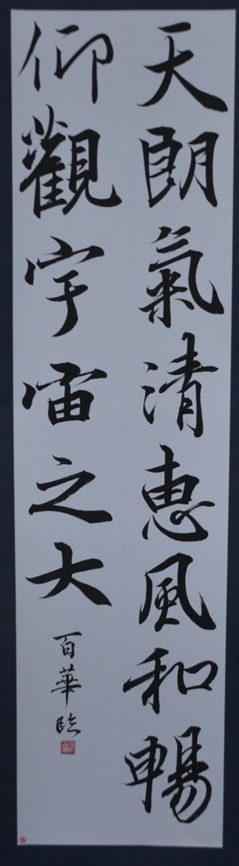 天朗氣清恵風和暢
仰觀宇宙之大
百華臨